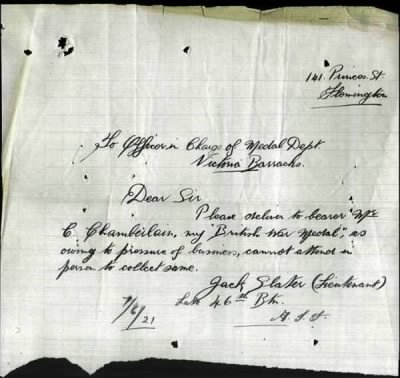 141 Princes St
Flemington
To Officer in Charge of Medal Dept
Victoria Barracks.
Dear Sir
Please deliver to bearer "Mrs
C. Chamberlain, my "British War Medal", as
owing to pressure of business, cannot attend in
person to collect same.
Jack Slater (Lieutenant)
Late 46th Btn.
A.I.F.
7/6/21